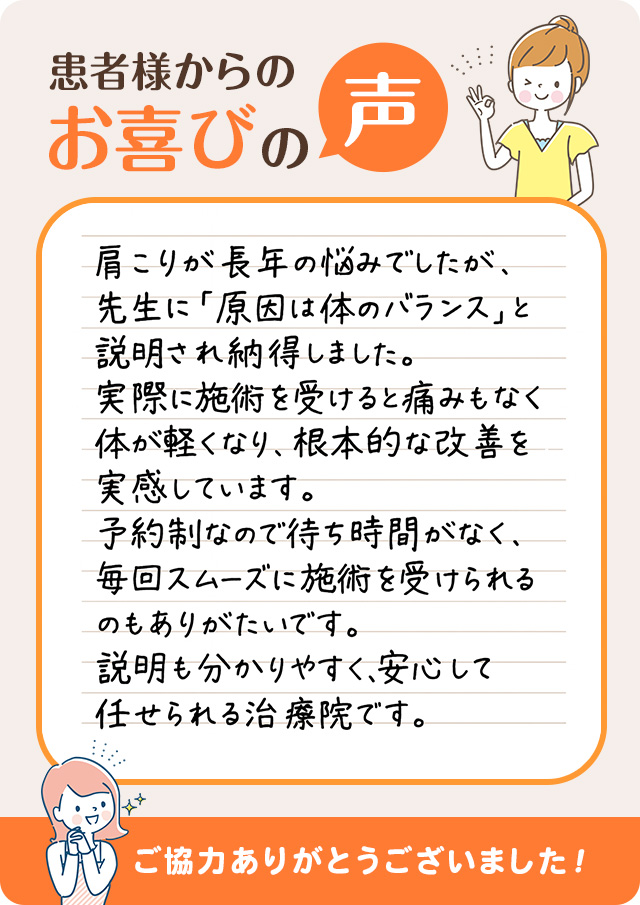 患者様からの
お喜びの声
肩こりが長年の悩みでしたが、
先生に「原因は体のバランス」と
説明され納得しました。
実際に施術を受けると痛みもなく
体が軽くなり、根本的な改善を
実感しています。
予約制なので待ち時間がなく、
毎回スムーズに施術を受けられる
のもありがたいです。
説明も分かりやすく、安心して
任せられる治療院です。
ご協力ありがとうございました!